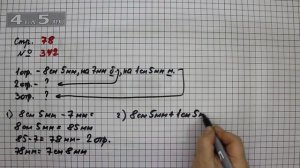 4 5
Стр. 78
№ 342
1 отр. - 8 см 5 мм, на 7 мм б., на 1 см 5 мм м.
2 отр. - ?
3 отр. - ?
1) 8 см 5 мм - 7 мм =
8 см 5 мм = 85 мм
85 - 7 = 78 мм - 2 отр.
78 мм = 7 см 8 мм
2) 8 см 5 мм + 1 см 5 м